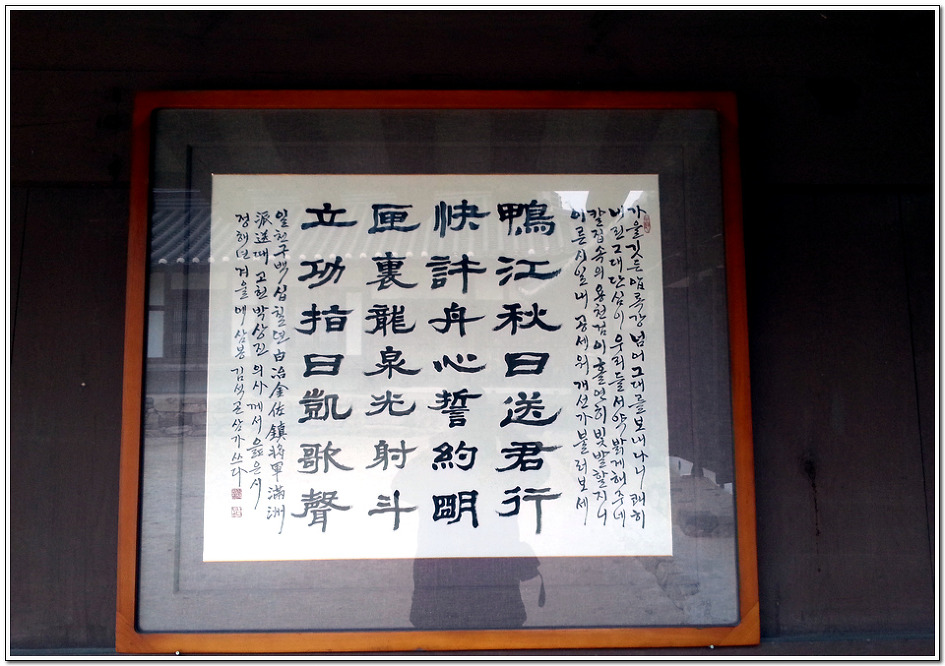 가을깃든 압록강 넘어 그대를 보내나니 쾌히
내린 그대 단심이 우리들 서약 밝게 해 주네
칼집속의 용천검이 홀연히 빛 발할지니
이른 시일내 공 세워 개선가 불러보세
鴨江秋日送君行
快許丹心誓約明
匣裏龍泉光射斗
立功指日凱歌聲
일천구백십칠년 白冶金佐鎭將軍滿洲
派送때 고헌 박상진 의사께서 읊은 시
정해년 겨울에 삼봉 김석곤 삼가 쓰다